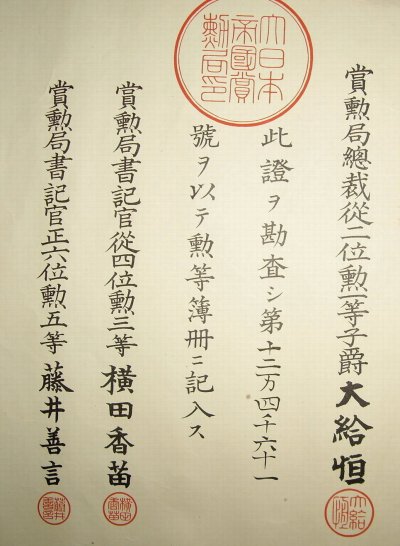 大日本
帝國賞
勲局印
賞勲局總裁從二位勲一等子爵大給恒
大給恒
此證ヲ勘査シ第十二万四千六十一
號ヲ以テ勲等簿册ニ記入ス
賞勲局書記官從四位勲三等横田香苗
横田香苗
賞勲局書記官正六位勲五等藤井善言
藤井善言